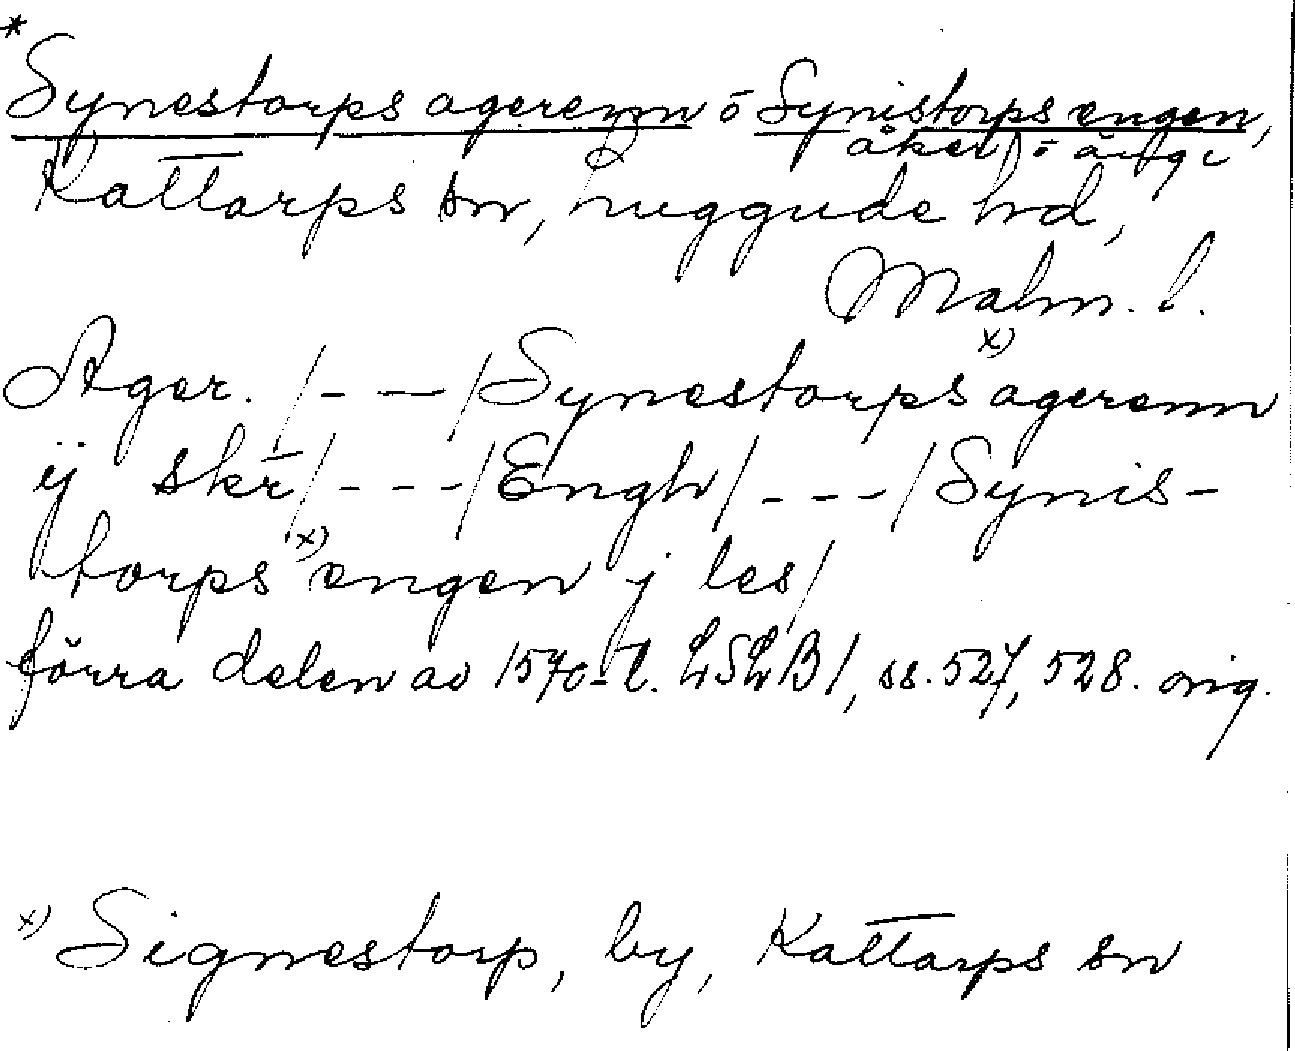 *
Synestorps agerenn o Synistorps engen,
åker o änge
Kattarps sn, Luggude hd,
Malm. l.
Ager. /- - -/ Synestorps x) agerenn
ij skr /- - -/ Engh /- - -/ Synis-
torps x) engen j les /
förra delen av 1570-t. LSLB1, ss. 527, 528. orig.
x) Signestorp, by, Kattarps sn